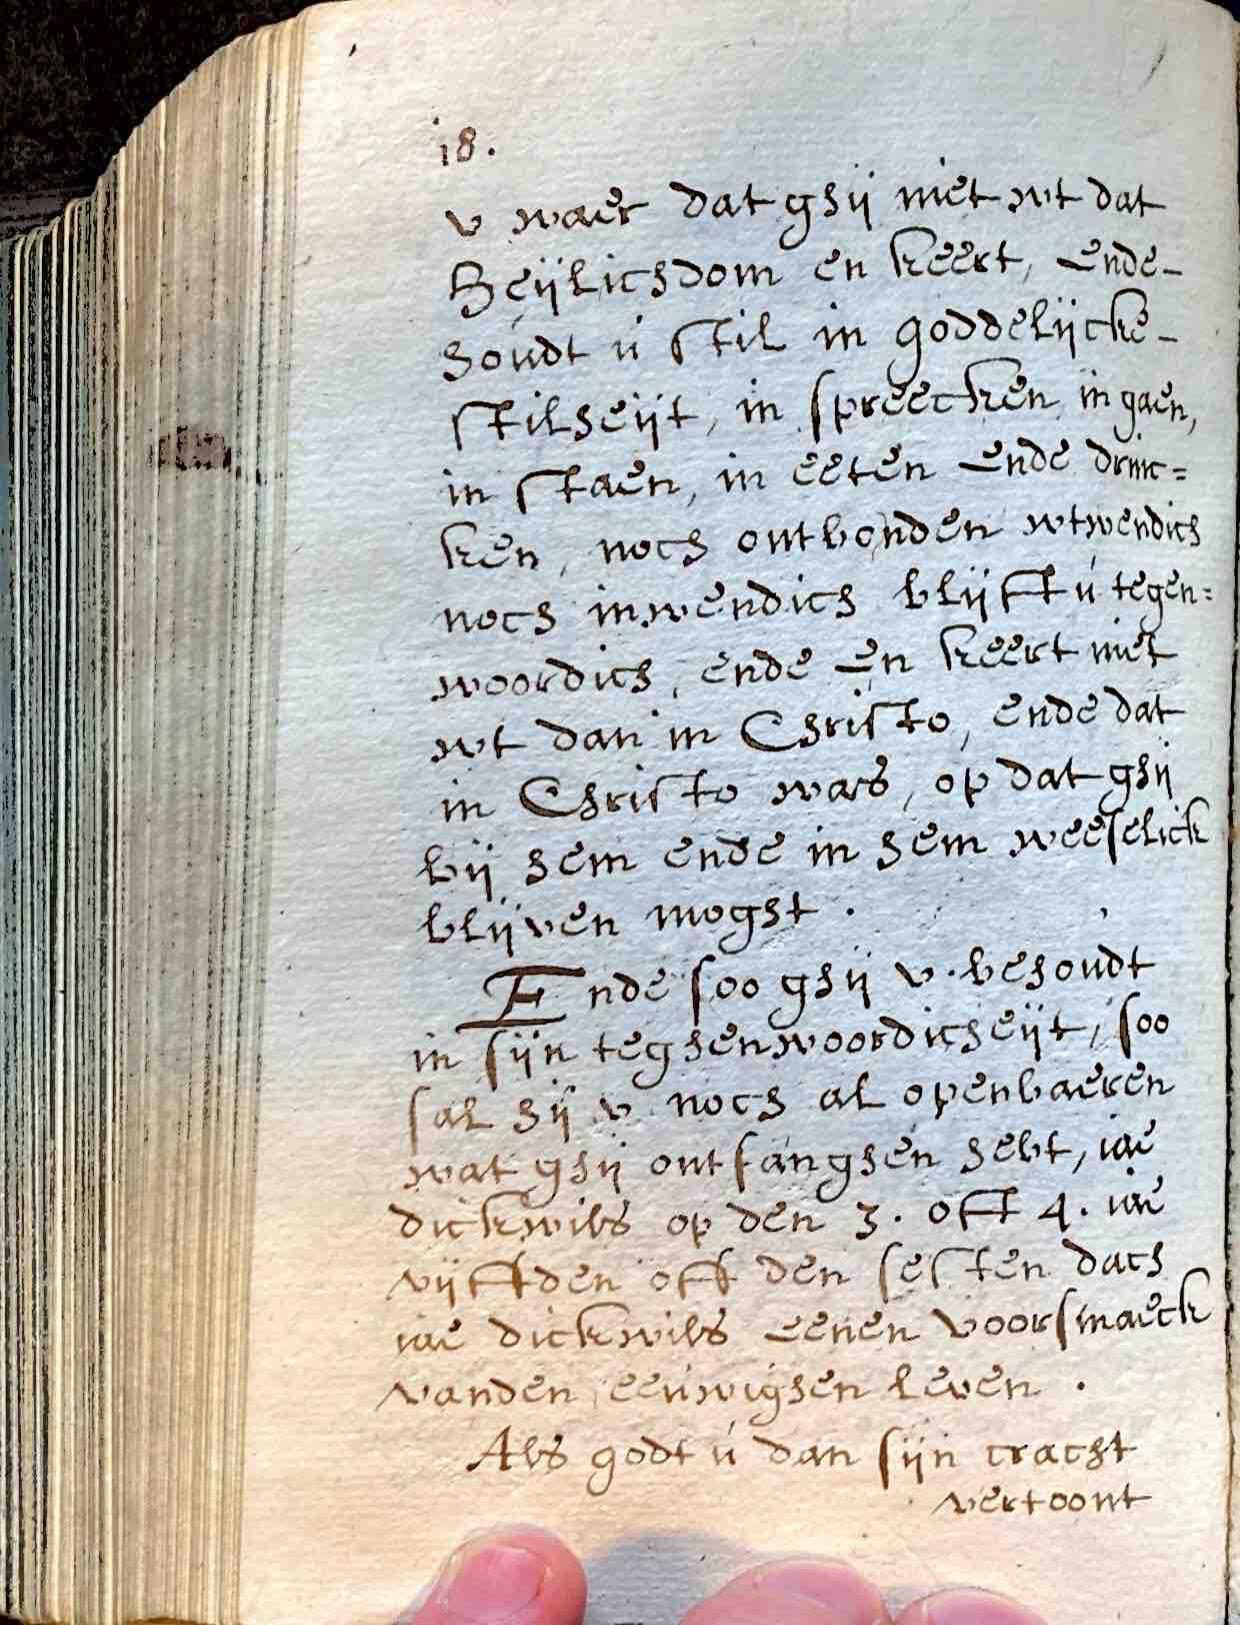 18.
v waer dat ghij niet wt dat
Heijlichdom en keert, ende-
houdt ú stil in goddelijcke-
stilheijt, in spreecken, in gaen,
in staen, in eeten ende drinc=
ken, noch ontbonden wtwendich
noch inwendich blijft ú tegen=
woordich, ende en keert niet
wt dan in Christo, ende dat
in Christo was, op dat ghij
bij hem ende in hem weeselick
blijven moght.
Ende soo ghij v behoudt
in sijn teghenwoordicheijt, soo
sal hij v noch al openbaeren
wat ghij ontfanghen hebt, iae
dickwils op den 3. oft 4. iae
vijftden oft den sesten dach
iae dickwils eenen voorsmaeck
vanden eeúwighen leven.
Als godt ú dan sijn cracht
vertoont